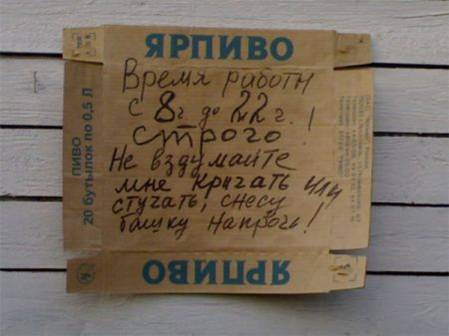 ЯРПИВО
Время работы
с 8ч. до 22ч.!
строго!
Не вздумайте
мне кричать или
стучать, снесу
башку напрочь!
ПИВО
20 бутылок по 0,5 Л
ЯРПИВО